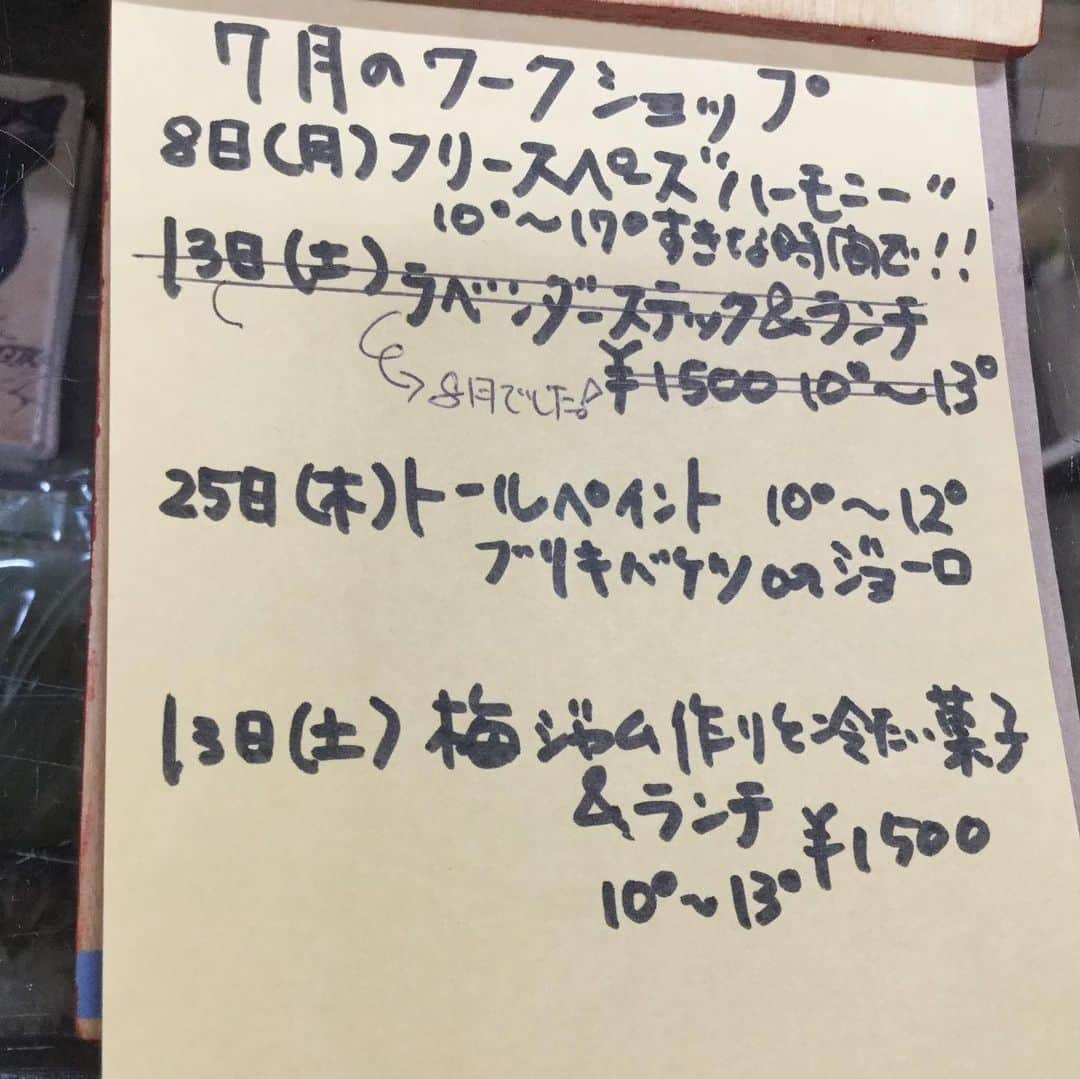 7月のワークショップ
8日(月)フリースペース"ハーモニー"
10°~17°すきな時間で!!
13日(土)ラベンダースティック&ランチ
¥1500 10°~13°
→8月でした!
25日(木)トールペイント 10°~12°
ブリキバケツorジョーロ
13日(土)梅ジャム作りと冷たい菓子
&ランチ
¥1500
10°~13°